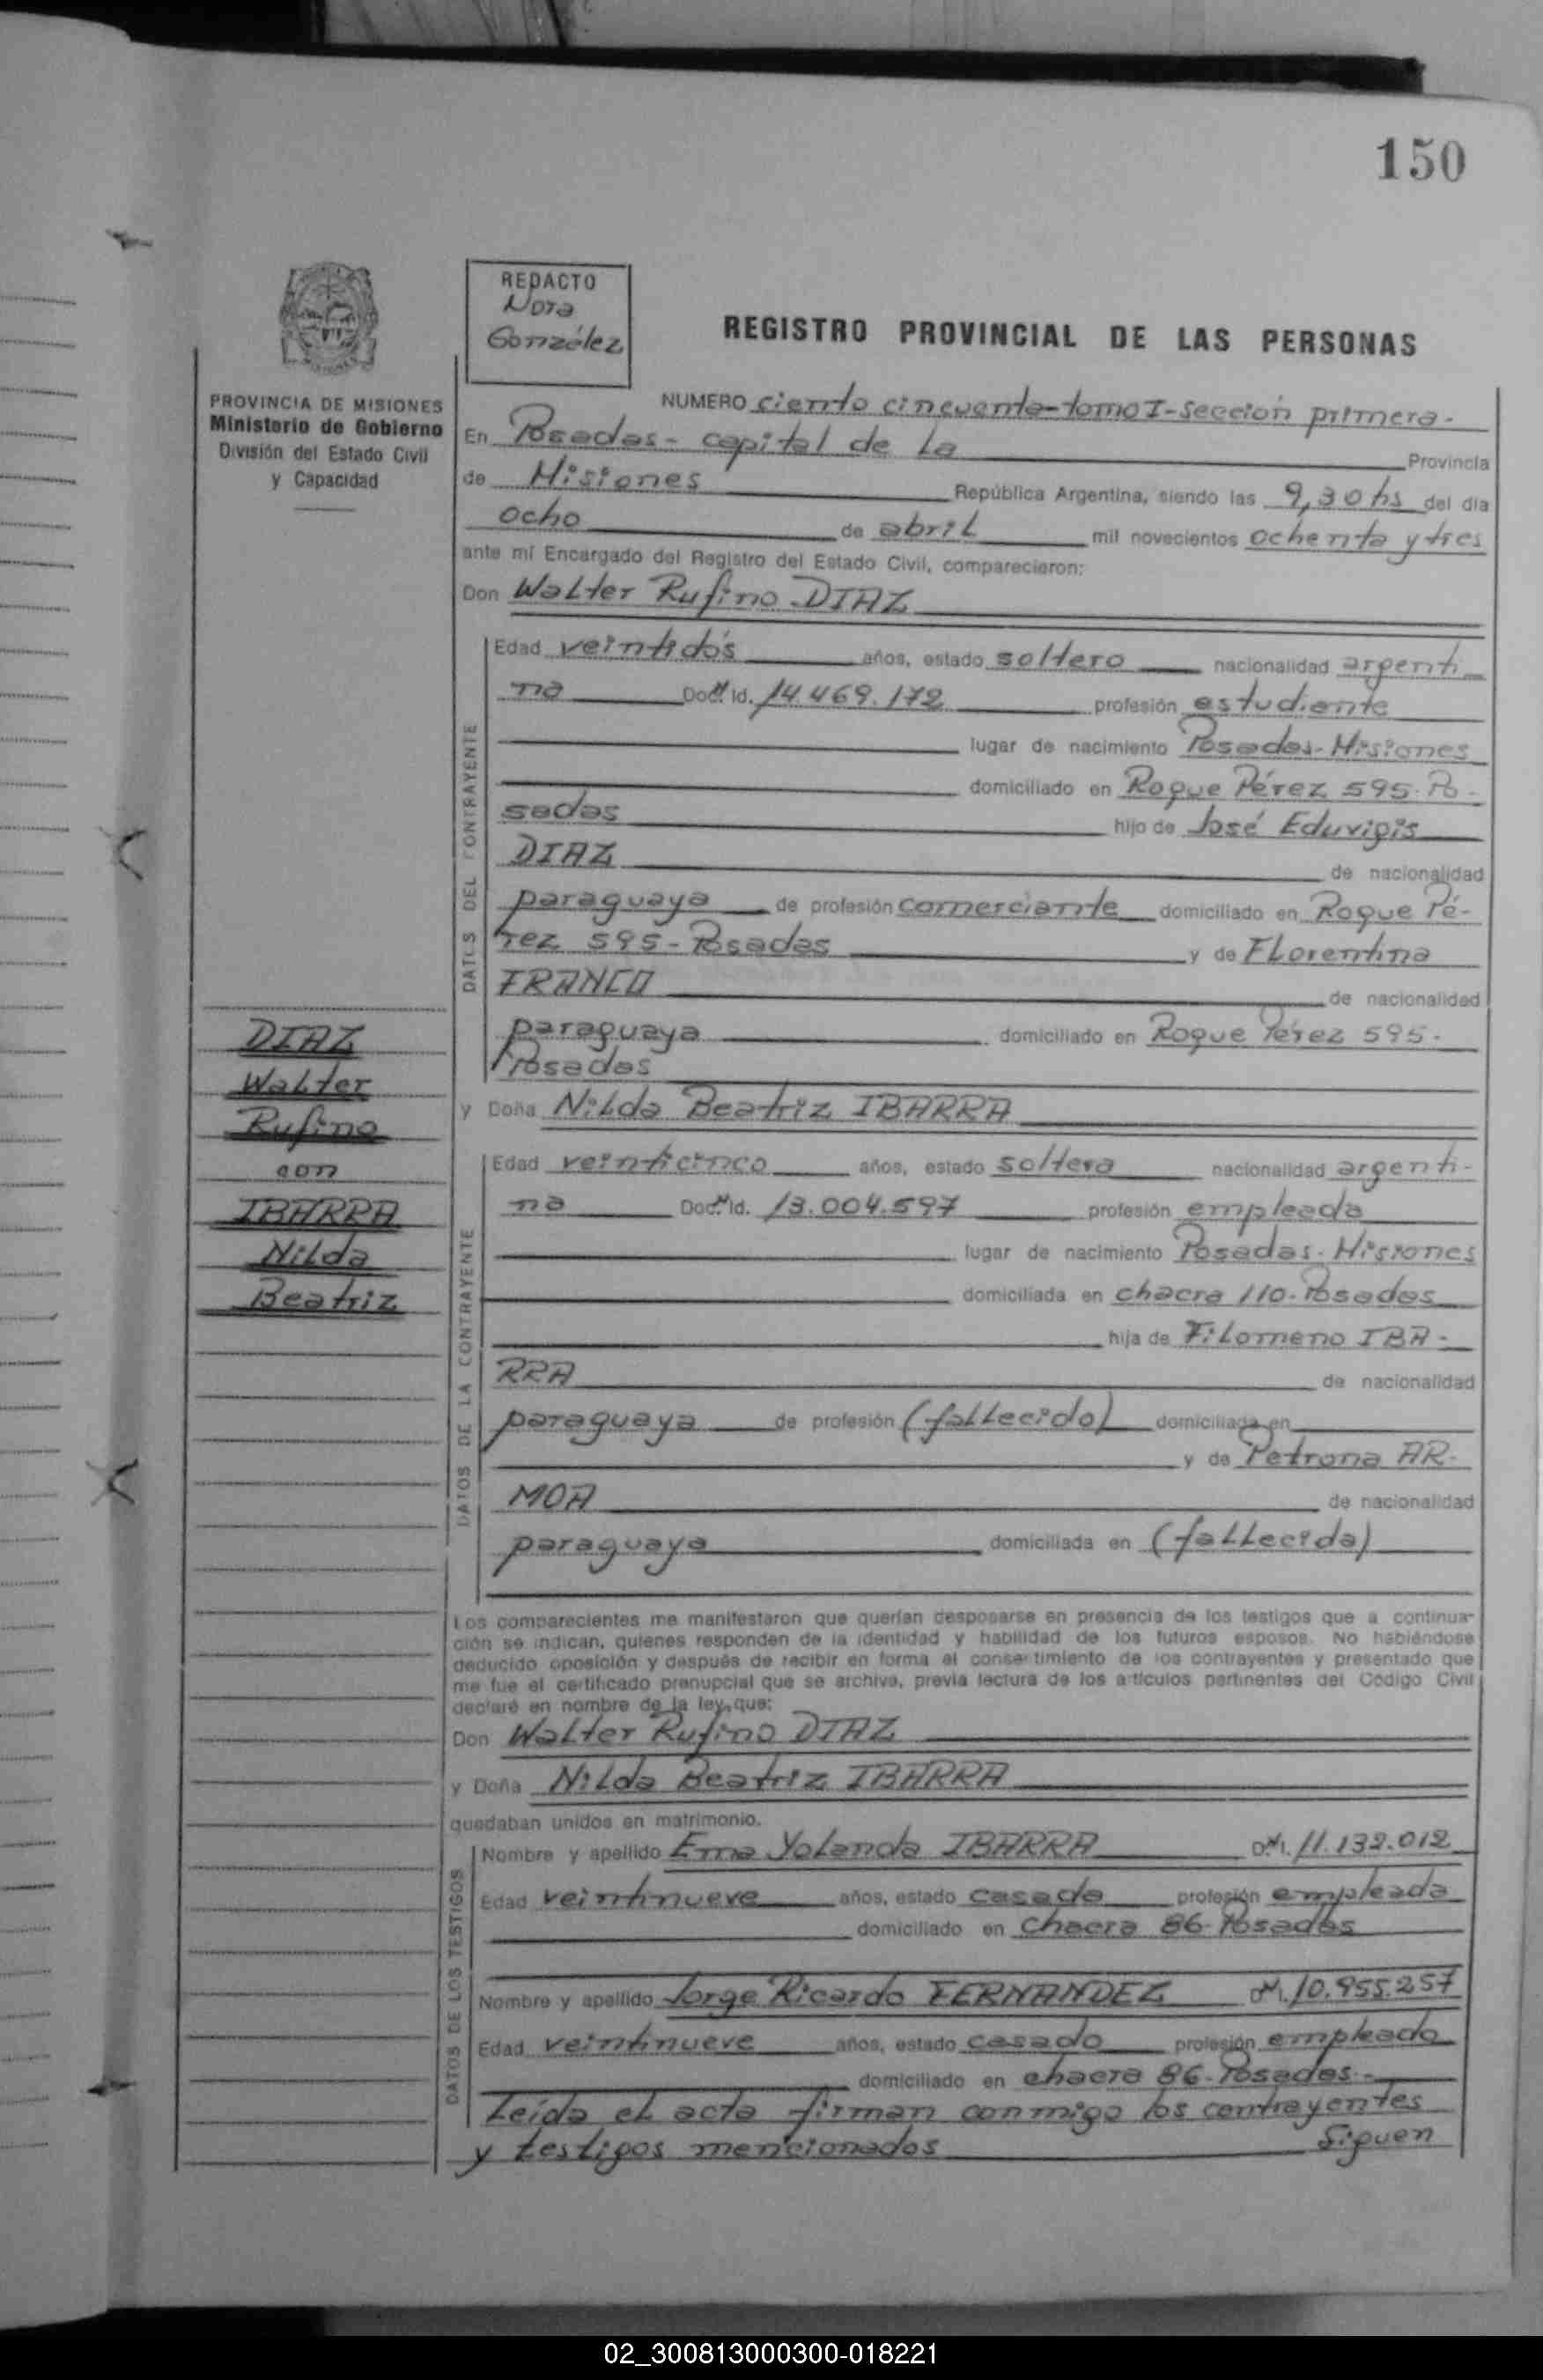 150
REDACTO
Nora
González
REGISTRO PROVINCIAL DE LAS PERSONAS
PROVINCIA DE MISIONES
Ministerio de Gobierno
División del Estado Civil
y Capacidad
NUMERO ciento cincuenta-tomo I-sección primera-
En Posadas- capital de La Provincia
de Misiones República Argentina, siendo las 9,30 hs del día
ocho de abril mil novecientos ochenta y tres
ante mí Encargado del Registro del Estado Civil, comparecieron:
Don Walter Rufino DIAZ
DATOS DEL CONTRAYENTE
Edad veintidós años, estado soltero nacionalidad argenti-
na Doc. Id. 14.469.172 profesión estudiante
lugar de nacimiento Posadas-Misiones
domiciliado en Roque Pérez 595-Po-
sadas hijo de José Eduvigis
DIAZ de nacionalidad
paraguaya de profesión comerciante domiciliado en Roque Pé-
rez 595-Posadas y de Florentina
FRANCO de nacionalidad
paraguaya domiciliado en Roque Pérez 595-
Posadas
y Doña Nilda Beatriz IBARRA
DIAZ
Walter
Rufino
con
IBARRA
Nilda
Beatriz
DATOS DE LA CONTRAYENTE
Edad veinticinco años, estado soltera nacionalidad argenti-
na Doc. Id. 13.004.597 profesión empleada
lugar de nacimiento Posadas-Misiones
domiciliada en chacra 110-Posadas
hija de Filomeno IBA-
RRA de nacionalidad
paraguaya de profesión (fallecido) domiciliada en
y de Petrona AR-
MOA de nacionalidad
paraguaya domiciliada en (fallecida)
Los comparecientes me manifestaron que querían desposarse en presencia de los testigos que a continua-
ción se indican, quienes responden de la identidad y habilidad de los futuros esposos. No habiéndose
deducido oposición y después de recibir en forma el consentimiento de los contrayentes y presentado que
me fue el certificado prenupcial que se archiva, previa lectura de los artículos pertinentes del Código Civil
declaré en nombre de la ley, que:
Don Walter Rufino DIAZ
y Doña Nilda Beatriz IBARRA
quedaban unidos en matrimonio.
DATOS DE LOS TESTIGOS
Nombre y apellido Ema Yolanda IBARRA D.N.I. 11.132.012
Edad veintinueve años, estado casada profesión empleada
domiciliado en chacra 86-Posadas
Nombre y apellido Jorge Ricardo FERNANDEZ D.N.I. 10.955.257
Edad veintinueve años, estado casado profesión empleado
domiciliado en chacra 86-Posadas-
Leída el acta firman conmigo los contrayentes
y testigos mencionados Siguen
02_300813000300-018221